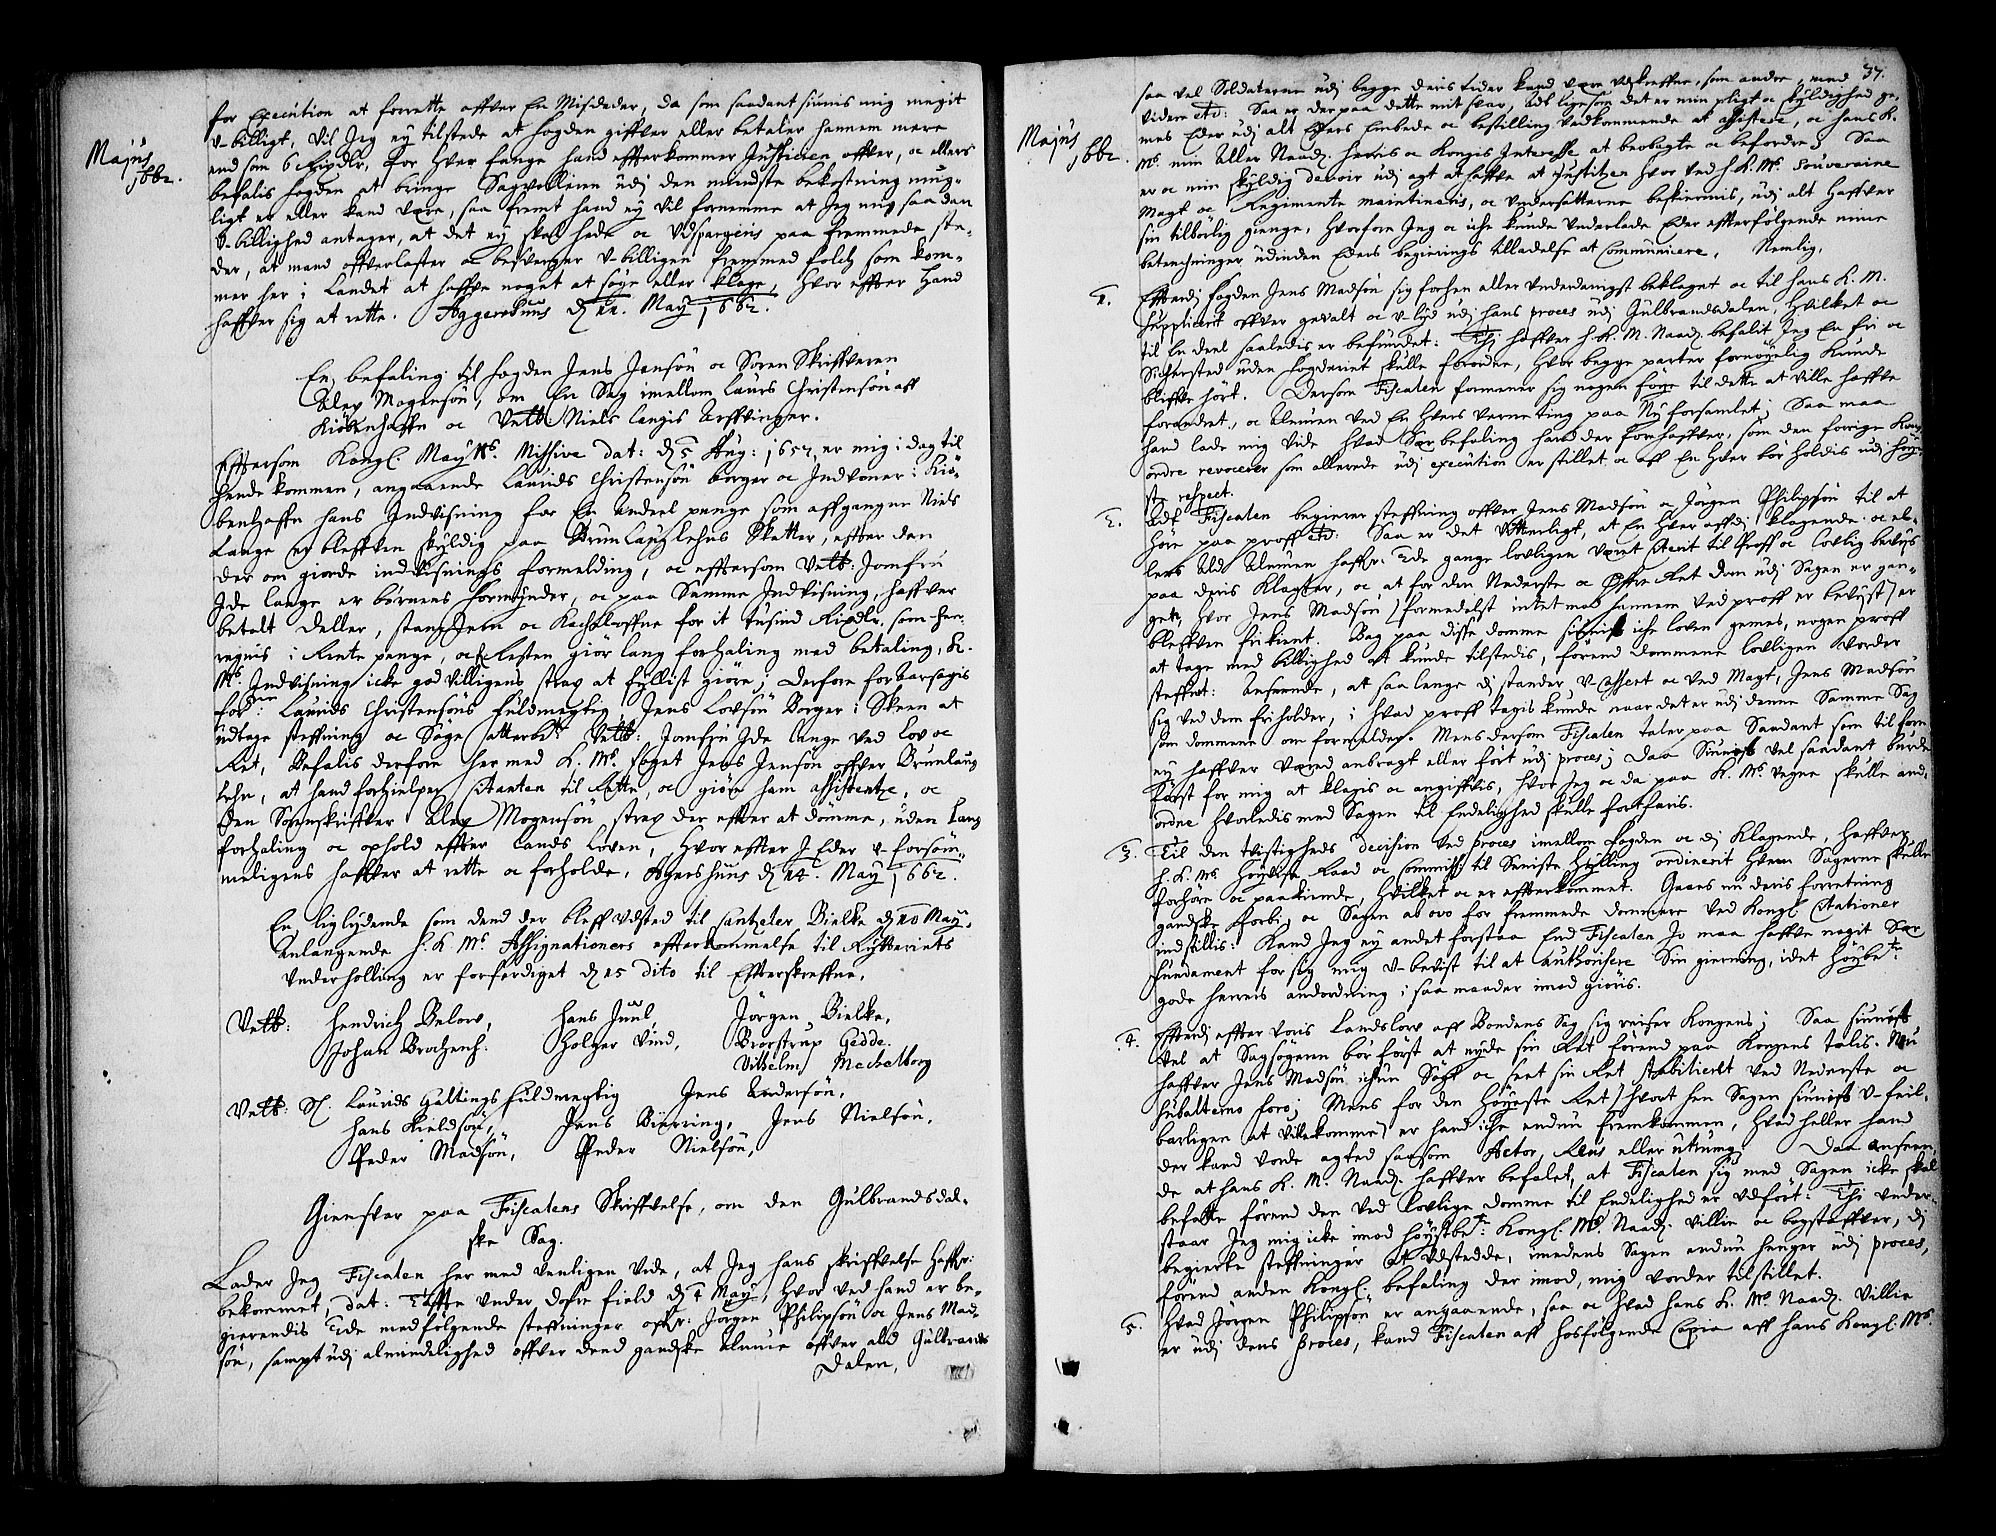 Majus
1662.
for Execution at forrette offver En Misdeder, da som saadant siunis mig megit
u-billigt, vil Jeg ey tilstede at fogden giffver eller betaler hannem mere
end som 6 Rixdlr. for hver fange hand effterkommer Justicien offver, oc ellers
befalis fogden at bringe Sagvolleren udj den mindste bekostning mug-
ligt er eller kand være, saa fremt hand ey vil fornemme at Jeg mig saadan
u-billighed antager, at det ey skal hede oc udspargeris paa fremmede ste-
der, at mand offverlaster oc besverger u-billigen fremmed folch som kom-
mer her i Landet at haffve noget at søge eller klage, Hvor effter Hand
haffver sig at rette. Aggershuus d. 12. May 1662.
En befaling til fogden Jens Jensøn oc Soren Skriffveren
Alex Mogensøn, om En Sag imellom Laurs Christensøn aff
Kiøbenhaffn oc Velb. Niels Langis Arffvinger.
Effersom Kongl. Maytts. Missive dat: d. 5 Aug: 1657, er mig i dag til
hende kommen, anglaaende Laurids Christensøn borger oc Indvoner i Kiø-
benhaffn hans Indvisning for En andeel penge som affgangne Niels
Lange er bleffven skyldig paa Brunlauglehns Skatter, effter den
der om giorde indvisnings formelding, oc effersom Velb: Jomfru
Ide Lange er børnens formynder, oc paa Samme Indvisning, haffver
betalt Deller, stangJern oc Kachelloffne for it tusind Rixdlr. som her-
regnis i Rente penge, oc Resten giør lang forhaling med betaling, K.
Ms. Indvisning icke godvilligens strax at fyllist giøre; Derfore foraarsagis
for: Laurids Christensøns fuldmegtig Jens Lovsøn Borger i Skeen at
udtage steffning oc Søge atterbt. Velb: Jomfru Ide Lange ved Lov oc
Ret, Befalis derfore her med K. Ms. foget Jens Jensøn offver Brunlaug
Lehn, at hand forhielper Citanten til Rette, oc giøre ham assistentze, oc
den Sorenskriffver Alex Mogensøn strax der effter at dømme, uden Lang
forhaling oc ophold effter Lands Loven, Hvor effter I Eder u-forsøm-
meligens haffver at rette oc forholde, Agershuus d. 14. May 1662.
En liglydende som dend der bleff udsted til Cantzeler Bielke d. 10 May,
Anlangende H. K. Ms. Assignationers effterkommelse til Rytteriets
Underholling er forferdiget d. 15 dito til Effterskreffne,
Velb: Hendrich Below, Hans Juul Jørgen Bielke,
Johan Brochenh. Holger Vind, Brorstrup Gedde.
Vilhelm Mechelborg
Velb: Sl. Laurids Galtings fuldmegtig Jens Andersøn,
Hans Kieldsøn, Jens Bierring, Jens Nielsøn,
Peder Madsøn, Peder Nielsøn,
Giensvar paa Fiscalens Skriffvelse, om den Gulbrandsdal-
ske Sag.
Lader Jeg Fiscalen her med venligen vide, at Jeg hans skriffvelse haffr:
bekommet, dat: Tofte under dofre field d. 4 May, hvor ved hand er be-
gierendis Ede medfølgende steffninger offr: Jørgen Philipsøn oc Jens Mad-
søn, sampt udj almindelighed offver dend gandske Almue offver ald Gulbrands
Dalen,
37.
Majus
1662.
saa vel Soldaterne udj begge deris tider kand være udskreffne, som andre, med
videre etc: Saa er derpaa dette mit svar, Adt ligesom det er min pligt oc skyldighed ge-
mes Eder udj alt Eders Embede oc bestilling vedkommende at assistere, oc hans K.
Ms. min Aller Naad. herris oc Kongis Interesse at beobagte oc befordre; Saa
er oc min skyldig devoir udj agt at haffve at Justitzen hvor ved H. K. Ms. Souveraine
Magt oc Regimente maintineris, oc undersatterne beskiermis, udj alt Haffver
sin tilbørlig gienge, hvorfore Jeg oc iche kunde underlade Eder effterfølgende mine
betenchninger udinden Eders begierings tilladelse at Communicere, Nemlig,
1. Effterdj fogden Jens Madsøn sig forhen aller underdanigst beklaget oc til hans K. M.
suppliceret offver gevalt oc u-lyd udj hans proces udj Gulbrandsdalen, Hvilket oc
til En deel saaledis er befundet: Thj haffver H. K. M. Naad. befalit Jeg En fri oc
Sichersted uden fogderiet skulle forordne, hvor begge parter fornøyelig Kunde
bliffve hørt. Dersom Fiscalen formener sig nogen føye til dette at ville haffve
forandret, oc Almuen ved En hvers verneting paa Ny forsamlet; Saa maa
hand lade mig vide hvad Sær befaling hand der for haffver, som den forige Kongl.
ordre revocerer som allerede udj execution er stillet oc aff En hver bør holdis udj høye-
ste respect.
2. Adt Fiscalen begierer steffning offver Jens Madsøn oc Jørgen Philipsøn til at
høre paa proff etc: Saa er det vitterligt, at En hver aff dj klagende oc el-
lers Ald Almuen haffr: Tide gange lovligen veret citerit til Proff oc Lovlig bevis
paa deris Klagter, oc at for den Nederste oc Øffre Ret dom udj Sagen er gan-
get, hvor Jens Madsøn (formedelst intet mod hannem ved proff er bevist) er
bleffven frikient. Bag paa disse domme siunis iche loven gemes, nogen proff
at tage med billighed at kunde tilstedis, førend dommene lovligen vorder
steffnet: Anseende, at saa lenge dj stander u-Cassert oc ved Magt, Jens Madsøn
sig ved dem friholder, i hvad proff tagis kunde naar det er udj denne Samme Sag
som dommene om formelder. Mens dersom Fiscalen taler paa Saadant som til forn
ey haffver været anbragt eller ført udj proces; daa Siunist vel saadant burde
først for mig at klagis oc angiffvis, hvor Jeg oc da paa K. Ms. vegne skulle and-
ordne hvorledis med Sagen til Endelighed skulle fortfaris.
3. Til den tvistigheds decision ved proces imellom Fogden oc dj Klagende, haffver
H. K. Ms. høyviise Raad oc Commiss: til Seniste Hylling ordinerit hvem Sagerne skulle
forhøre oc paakiende, hvilket oc er effterkommet. Gaaes nu deris forretning
gandske forbi, oc Sagen ab ovo for fremmede dommere ved Kongl. Citationer
indstillis: Kand Jeg ey andet forstaa End Fiscalen Jo maa haffve nogit Sær
fundament for sig mig u-bevist til at authorisere Sin gierning, idet Høybete:
gode herreis andordning i saa maader imod giøris.
4. Effterdj effter voris Landslow aff Bondens Sag sig reiser Kongens; Saa siunist
vel at Sagsøgeren bør først at nyde sin Ret førend paa Kongens talis. Nu
haffver Jens Madsøn ichun Søgt oc hent sin Ret stabilieret ved Nederste oc
subalterno foro; Mens for den høyeste Ret (hvort hen Sagen siunist u-feil-
barligen at ville komme) er hand iche endnu fremkommen, hvad heller hand
der kand vorde agted saasom Actor, Reus eller utrumq; Daa anseen-
de at hans K. M. Naad. haffver befalet, at Fiscalen sig med Sagen icke skal
befatte førend den ved lovlige domme til Endelighed er udført: Thi under-
staar Jeg mig icke imod høystbe:te Kongl. Ms. Naad. villie oc bogstaffver, dj
begierte steffninger at udstedde, imedens Sagen endnu henger udj proces,
førend anden Kongl. befaling der imod, mig vorder tilstillet.
5. Hvad Jørgen Philipsøn er angaaende, saa oc hvad hans K. Ms. Naad. villie
er udj dens proces, kand Fiscalen aff hosfølgende Copie aff hans Kongl. Ms.